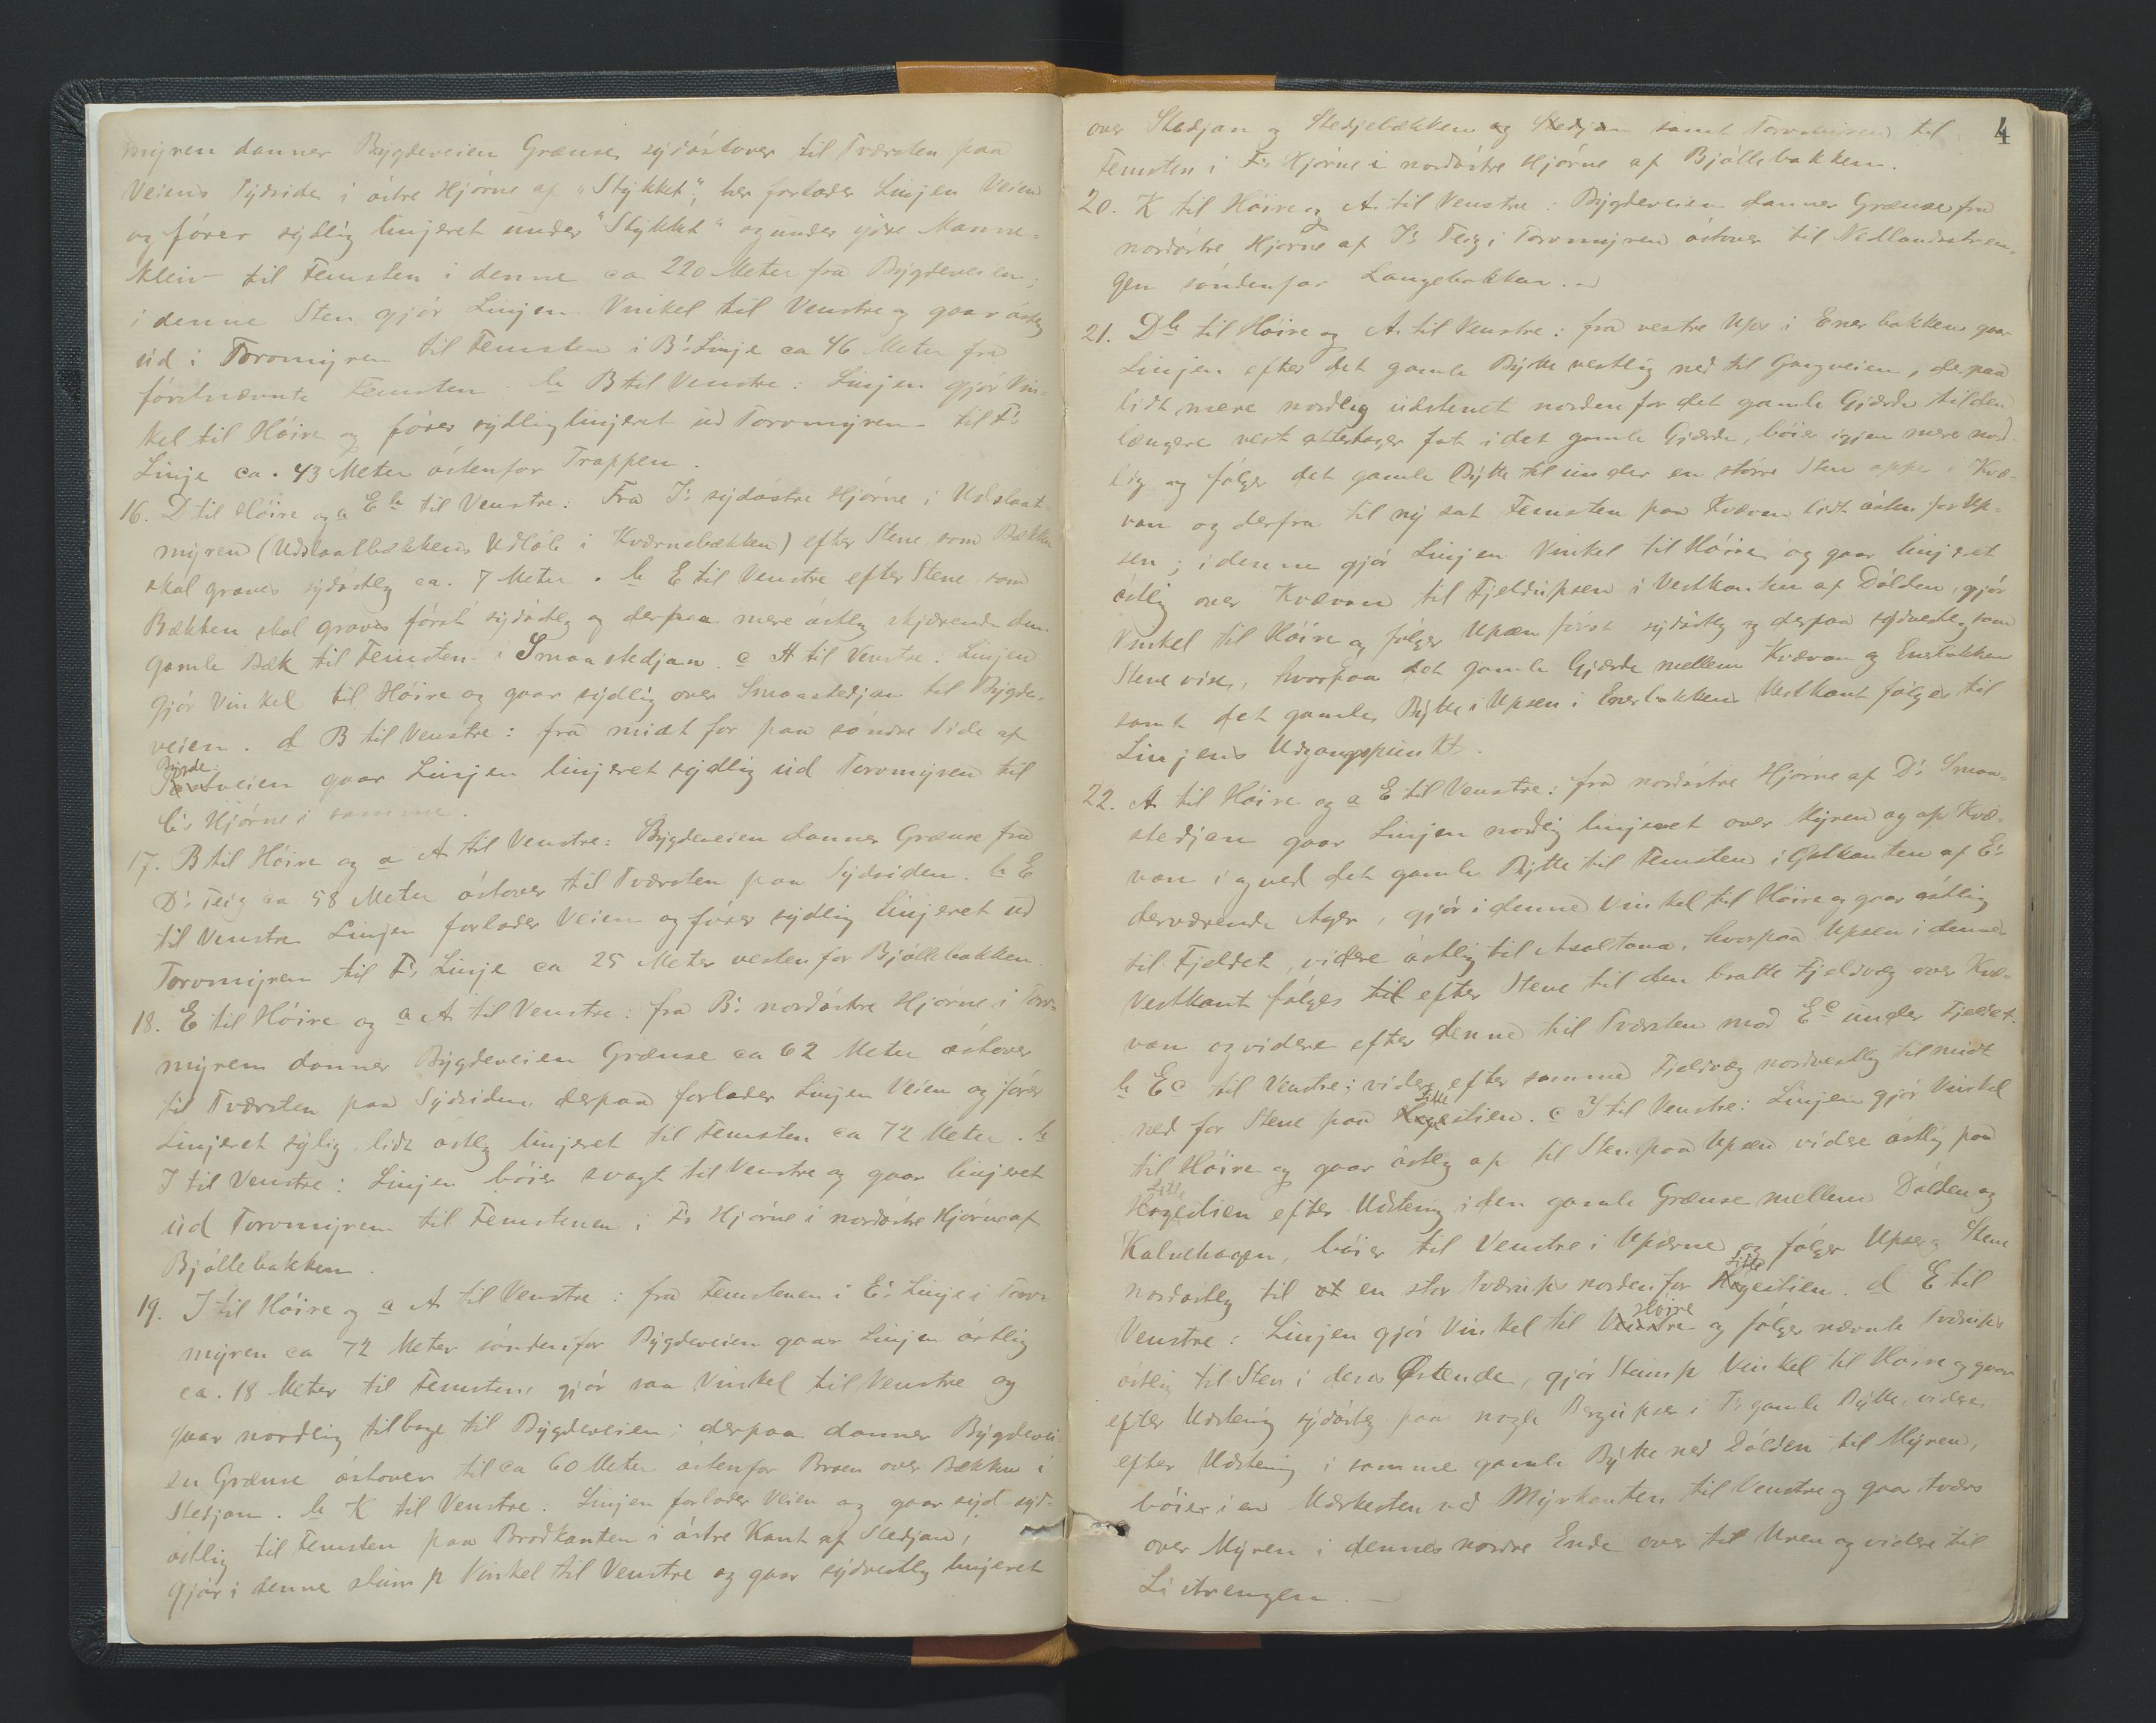 myren danner Bygdeveien Grænse sydöstover til Tværsten paa
Veiens Sydside i östre Hjörne af "Stykket", her forlader Linjen Veien
og förer sydlig linjeret under "Stykket" og under ytre Manne-
kleiv til Femsten i denne ca 220 Meter fra Bygdeveien;
i denne Sten gjör Linjen Vinkel til Venstre og gaar östlig
ud i Torvmyren til Femsten i B's Linje ca 46 Meter fra
förstnævnte Femsten. b B til Venstre: Linjen gjör Vin-
kel til Höire og förer sydlig linjeret ud Torvmyren til F's
Linje ca. 43 Meter östenfor Trappen.
16. D til Höire og a E b til Venstre: Fra I's sydöstre Hjörne i Udslaat-
myren (Udslaatbækkens Udlöb i Kværnebækken) efter Stene som Bækken
skal graves sydöstlig ca. 7 Meter. b E til Venstre efter Stene som
Bækken skal graves först sydöstlig og derpaa mere östlig skjærende den
gamle Bæk til Femsten i Smaastedjan. c A til Venstre: Linjen
gjör Vinkel til Höire og gaar sydlig over Smaastedjan til Bygde-
veien. d B til Venstre: fra midt for paa söndre Side af
Bygde-
veien gaar Linjen linjeret sydlig ud Torvmyren til
C's Hjörne i samme.
17. B til Höire og a A til Venstre: Bygdeveien danner Grænse fra
D's Teig ca 58 Meter östover til Tværsten paa Sydsiden. b E
til Venstre Linjen forlader Veien og förer sydlig linjeret ud
Torvmyren til F's Linje ca 25 Meter vesten for Bjöllebakken.
18. E til Höire og a A til Venstre: fra B's nordöstre Hjörne i Torv-
myren danner Bygdeveien Grænse ca 62 Meter östover
til Tværsten paa Sydsiden derpaa forlader Linjen Veien og förer
Linjeret sylig lidt östlig linjeret til Femsten ca 72 Meter. b
I til Venstre: Linjen böier svagt til Venstre og gaar linjeret
ud Torvmyren til Femstenen i F's Hjörne i nordöstre Hjörne af
Bjöllebakken.
19. I til Höire og a A til Venstre: fra Femstenen i E's Linje i Torv-
myren ca 72 Meter söndenfor Bygdeveien gaar Linjen östlig
ca. 18 Meter til Femsten, gjör saa Vinkel til Venstre og
gaar nordlig tilbage til Bygdeveien; derpaa danner Bygdevei-
en Grænse östover til ca 60 Meter östenfor Broen over Bækken i
Stedjan. b K til Venstre: Linjen forlader Veien og gaar syd-syd-
östlig til Femsten paa Brodkanten i östre Kant af Stedjan,
gjör i denne stump Vinkel til Venstre og gaar sydvestlig linjeret
4
over Stedjan og Stedjebækken og Stedjan samt Torvmyren til
Femsten i F's Hjörne i nordöstre Hjörne af Bjöllebakken.
20. K til Höire og A til Venstre: Bygdeveien danner Grænse fra
nordöstre Hjörne af I's Teig i Torvmyren östover til Nedlandsstren-
gen söndenfor Langebakken.
21. D b til Höire og A til Venstre: fra vestre Ups i Enerbakken gaar
Linjen efter det gamle Bytte vestlig ned til Gangveien, derpaa
lidt mere nordlig udstenet norden for det gamle Gjærde til den
længere vest attertager fat i det gamle Gjærde, böier igjen mere nord-
lig og fölger det gamle Bytte til under en större Sten oppe i Kvæ-
van og derfra til ny sat Femsten paa Kvævan lidt östen for Up-
sen; i denne gjör Linjen Vinkel til Höire og gaar linjeret
östlig over Kvævan til Fjeldupsen i Vestkanten af Dölden, gjör
Vinkel til Höire og fölger Upsen först sydöstlig og derpaa sydvestlig som
Stene vise, hvorpaa det gamle Gjærde mellem Kvævan og Enerbakken
samt det gamle Bytte i Upsen i Enerbakkens Vestkant fölges til
Linjens Udgangspunkt.
22. A til Höire og a E til Venstre: fra nordöstre Hjörne af D's Smaa-
stedjan gaar Linjen nordlig linjeret over Myren og op Kvæ-
van i og ved det gamle Bytte til Femsten i Østkanten af E's
derværende Ager, gjör i denne Vinkel til Höire og gaar östlig
til Fjeldet, videre östlig til Asaltona, hvorpaa Upsen i dennes
Vestkant fölges til efter Stene til den bratte Fjeldvæg over Kvæ-
van og videre efter denne til Tværsten mod E c under Fjeldet.
b E c til Venstre: videre efter samme Fjeldvæg nordvestlig til midt
ned for Stene paa Litle
Høgestien. c I til Venstre: Linjen gjör Vinkel
til Höire og gaar östlig op til Sten paa Upsen videre östlig paa
Litle
Høgestien efter Udstening i den gamle Grænse mellem Dölden og
Kalvehagen, böier til Venstre i Upserne og fölger Upser og Stene
nordöstlig til et en stor Tværups nordenfor Litle Høgestien. d E til
Venstre: Linjen gjör Vinkel til Venstre Höire og fölger nævnte Tværups
östlig til Sten i dens Østende, gjör Stump Vinkel til Höire og gaar
efter Udstening sydöstlig paa nogle Bergupser i I's gamle Bytte, videre
efter Udstening i samme gamle Bytte ned Dölden til Myren,
böier i en Mærkesten ved Myrkanten til Venstre og gaar tværs
over Myren i dennes nordre Ende over til Uren og videre til
Listrengen.